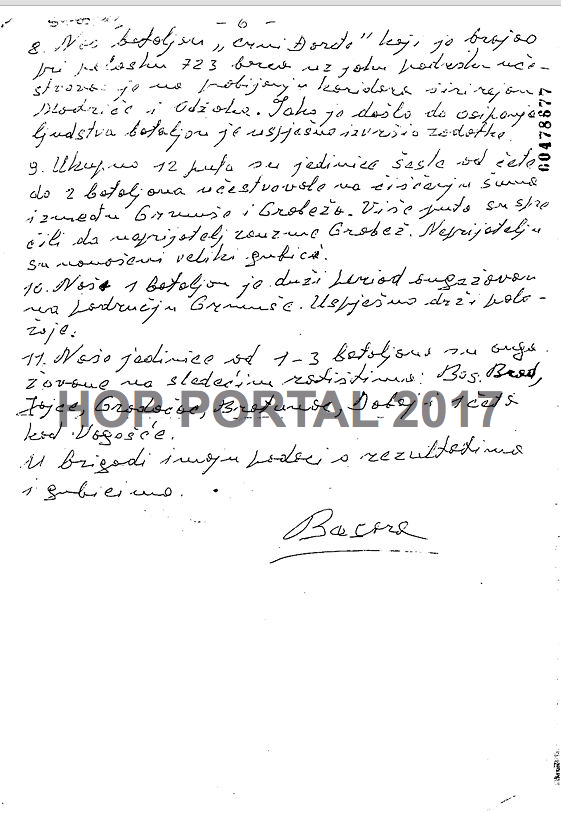 - 6 -
8. Naš bataljon „Crni Đorđe" koji je brojao
pri polasku 723 borca uz jaku podršku uče-
stvovao je na probijanju koridora širi rejon
Modriče i Odžaka. Iako je došlo do osipanja
ljudstva bataljon je uspješno izvršio zadatke.
00478677
9. Ukupno 12 puta su jedinice jačine od čete
do 2 bataljona učestvovale na čišćenju šuma
između Grmuše i Grabeža. Više puta su spre
čili da neprijatelj zauzme Grabež. Neprijatelju
su nanošeni veliki gubici.
10. Naš 1 bataljon je duži period angažovan
na području Grmuše. Uspješno drži polo-
žaje.
11. Naše jedinice od 1-3 bataljona su anga
žovane na sledećim ratištima: Bos. Brod,
Jajce, Gradačac, Bratunac, Doboj i 1 četa
kod Vogošće.
U brigadi imaju podaci o rezultatima
i gubicima.
HOP PORTAL 2017